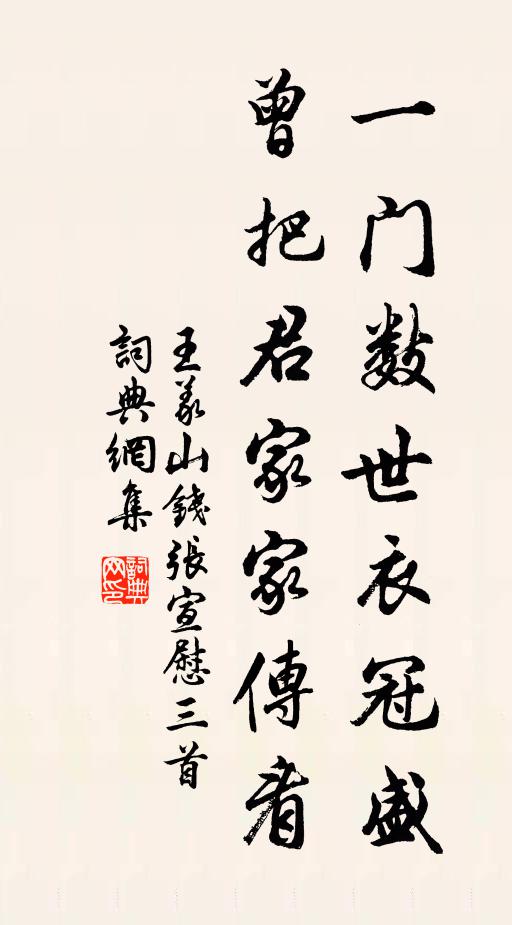 一门数世衣冠盛
曾把君家家傳看
王義山錢張宣慰三首
詞典網集
詞典网印